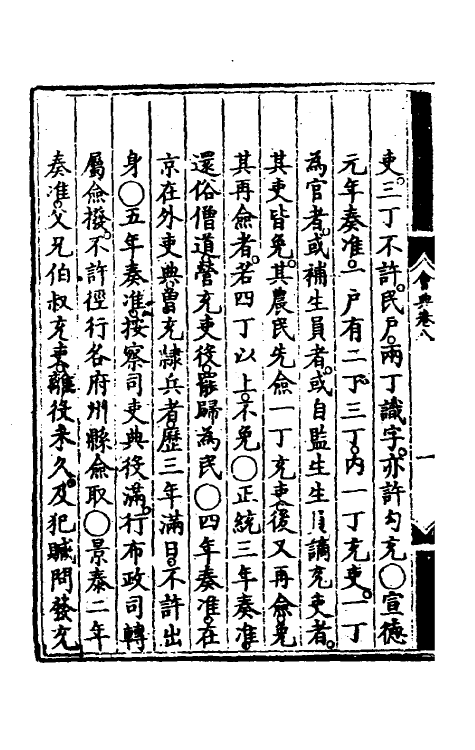 會典卷八
一
吏。三丁不許。民戶。兩丁識字。亦許勾充○宣德
元年奏准。一戶有二丁。三丁。內一丁充吏。一丁
為官者。或補生員者。或自監生生員謫充吏者。
其吏皆免。其農民先僉一丁充吏。後又再僉。免
其再僉者。若四丁以上。不免○正統三年奏准。
還俗僧道。營充吏役。罷歸為民○四年奏准。在
京在外吏典。曾充隸兵者。歷三年滿日。不許出
身○五年奏准。按察司吏典役滿。行布政司轉
屬僉撥。不許徑行各府州縣僉取○景泰二年
奏准。父兄伯叔充吏。離役未久。及犯贓問發充